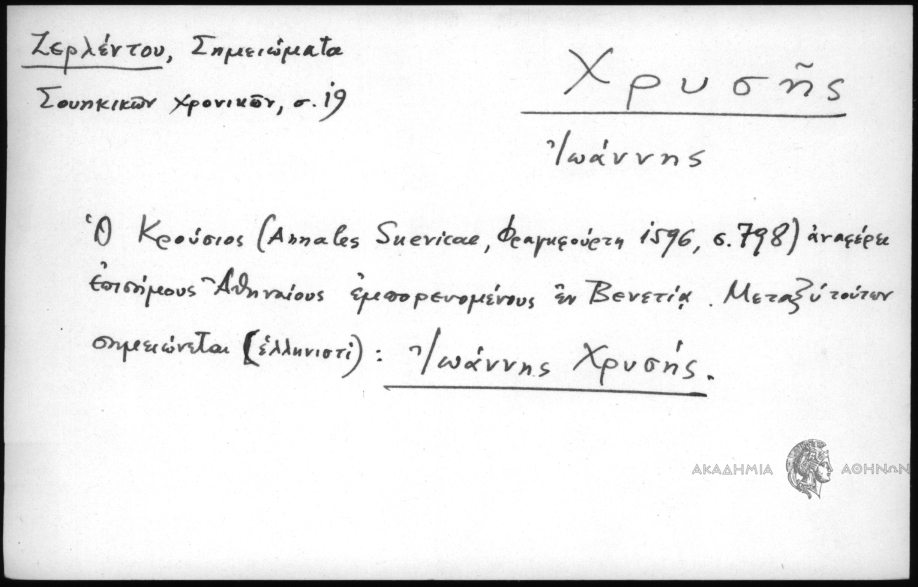 Ζερλέντου, Σημειώματα
Σουηκικῶν χρονικῶν, σ. 19
Χρυσῆς
Ἰωάννης
Ὁ Κρούσιος (Annales Suevicae, Φραγκφούρτη 1596, σ. 798) ἀναφέρει
ἐπισήμους Ἀθηναίους ἐμπορευομένους ἐν Βενετίᾳ. Μεταξὺ τούτων
σημειώνεται (ἑλληνιστί): Ἰωάννης Χρυσής.
ΑΚΑΔΗΜΙΑ ΑΘΗΝΩΝ